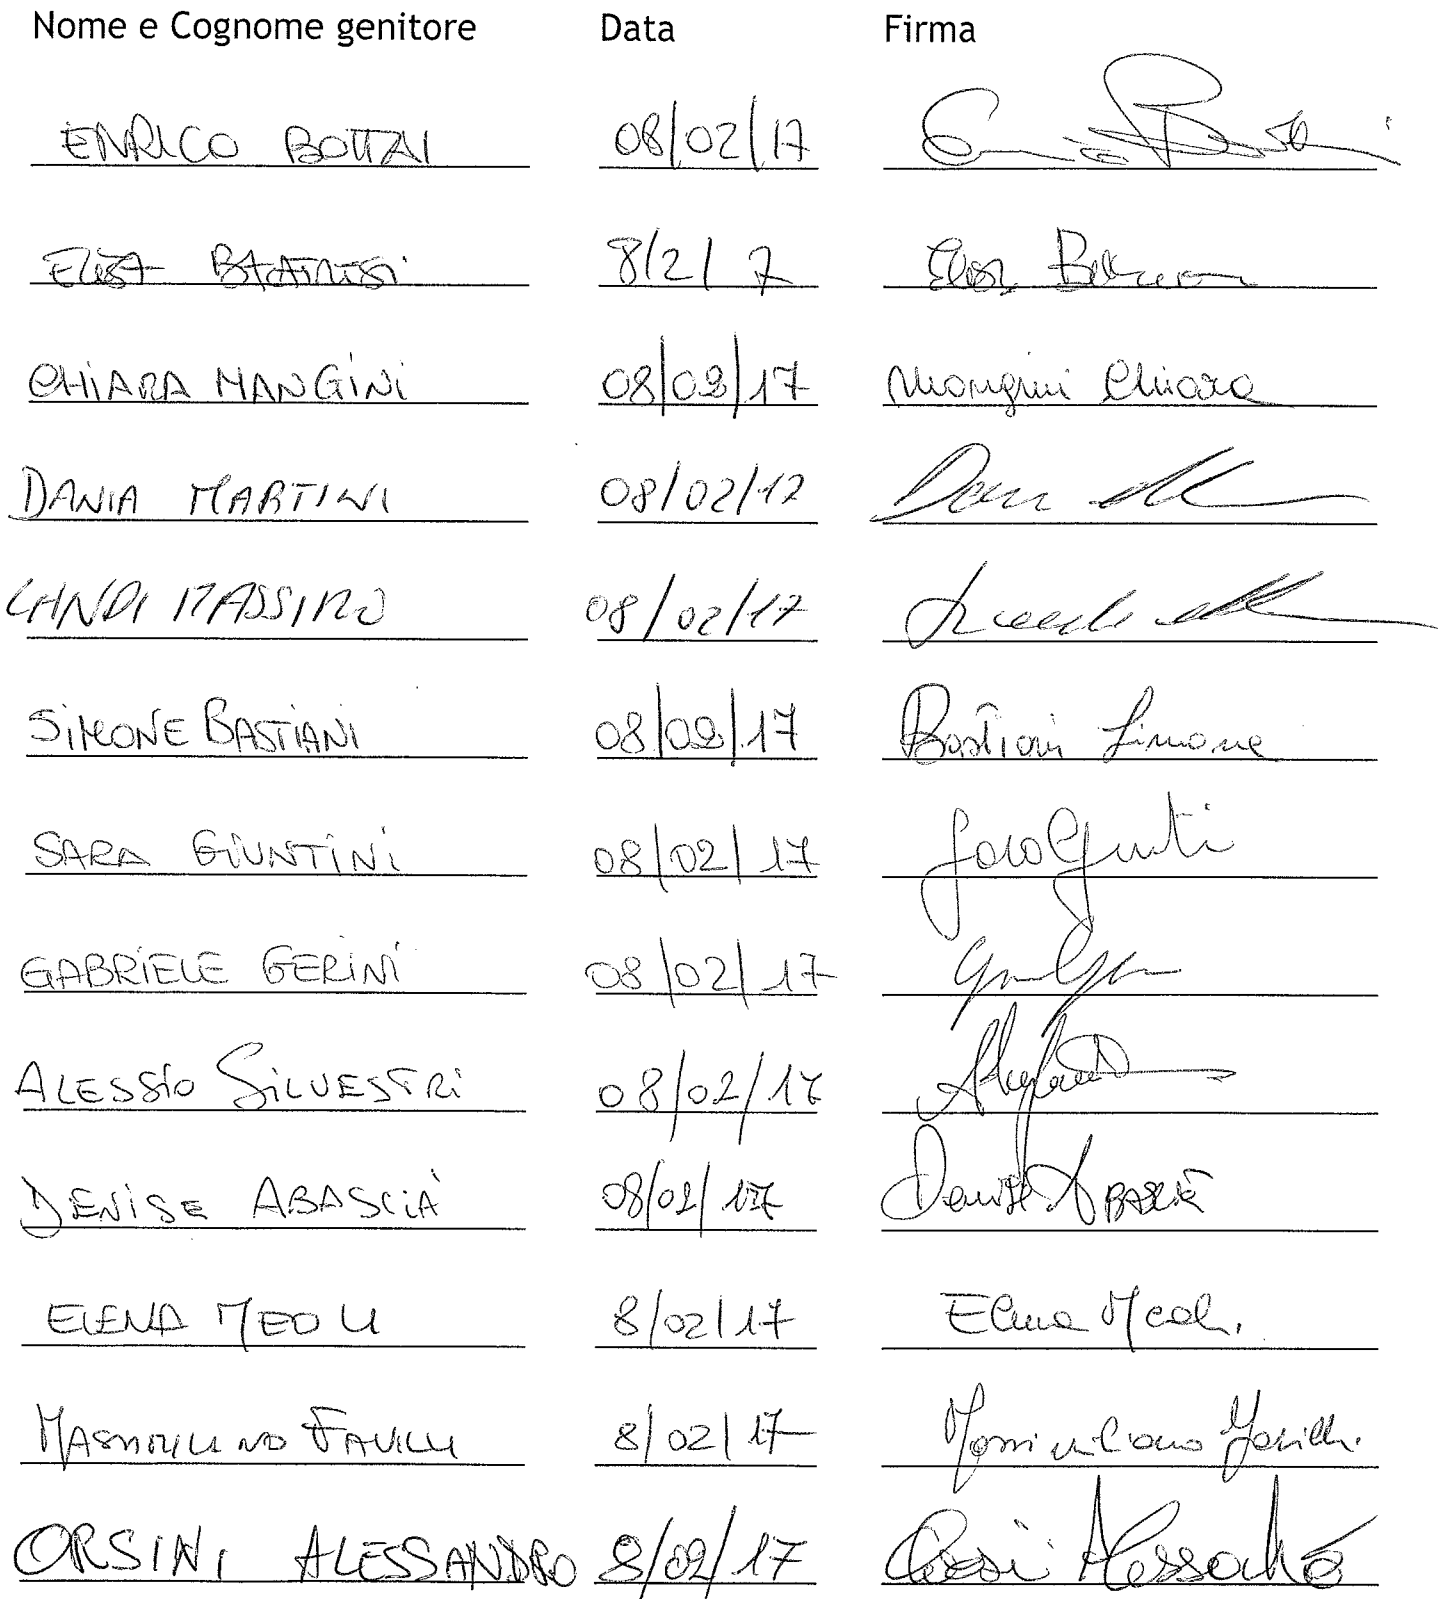 Nome e Cognome genitore Data Firma
ENRICO BOTTAI 08/02/17
ELISA 8/2/17 Elisa
CHIARA MANGINI 08/02/17 Mangini Chiara
DANIA MARTINI 08/02/17
LANDI MASSIMO 08/02/17
SIMONE BASTIANI 08/02/17 Bastiani Simone
SARA GIUNTINI 08/02/17
GABRIELE GERINI 08/02/17
ALESSIO SILVESTRI 08/02/17
DENISE ABASCIÀ 08/02/17 Denise Abascià
ELENA MEOLI 8/02/17 Elena Meoli
MASSIMILIANO FAVILLI 8/02/17 Massimiliano Favilli
ORSINI ALESSANDRO 8/02/17 Orsini Alessandro